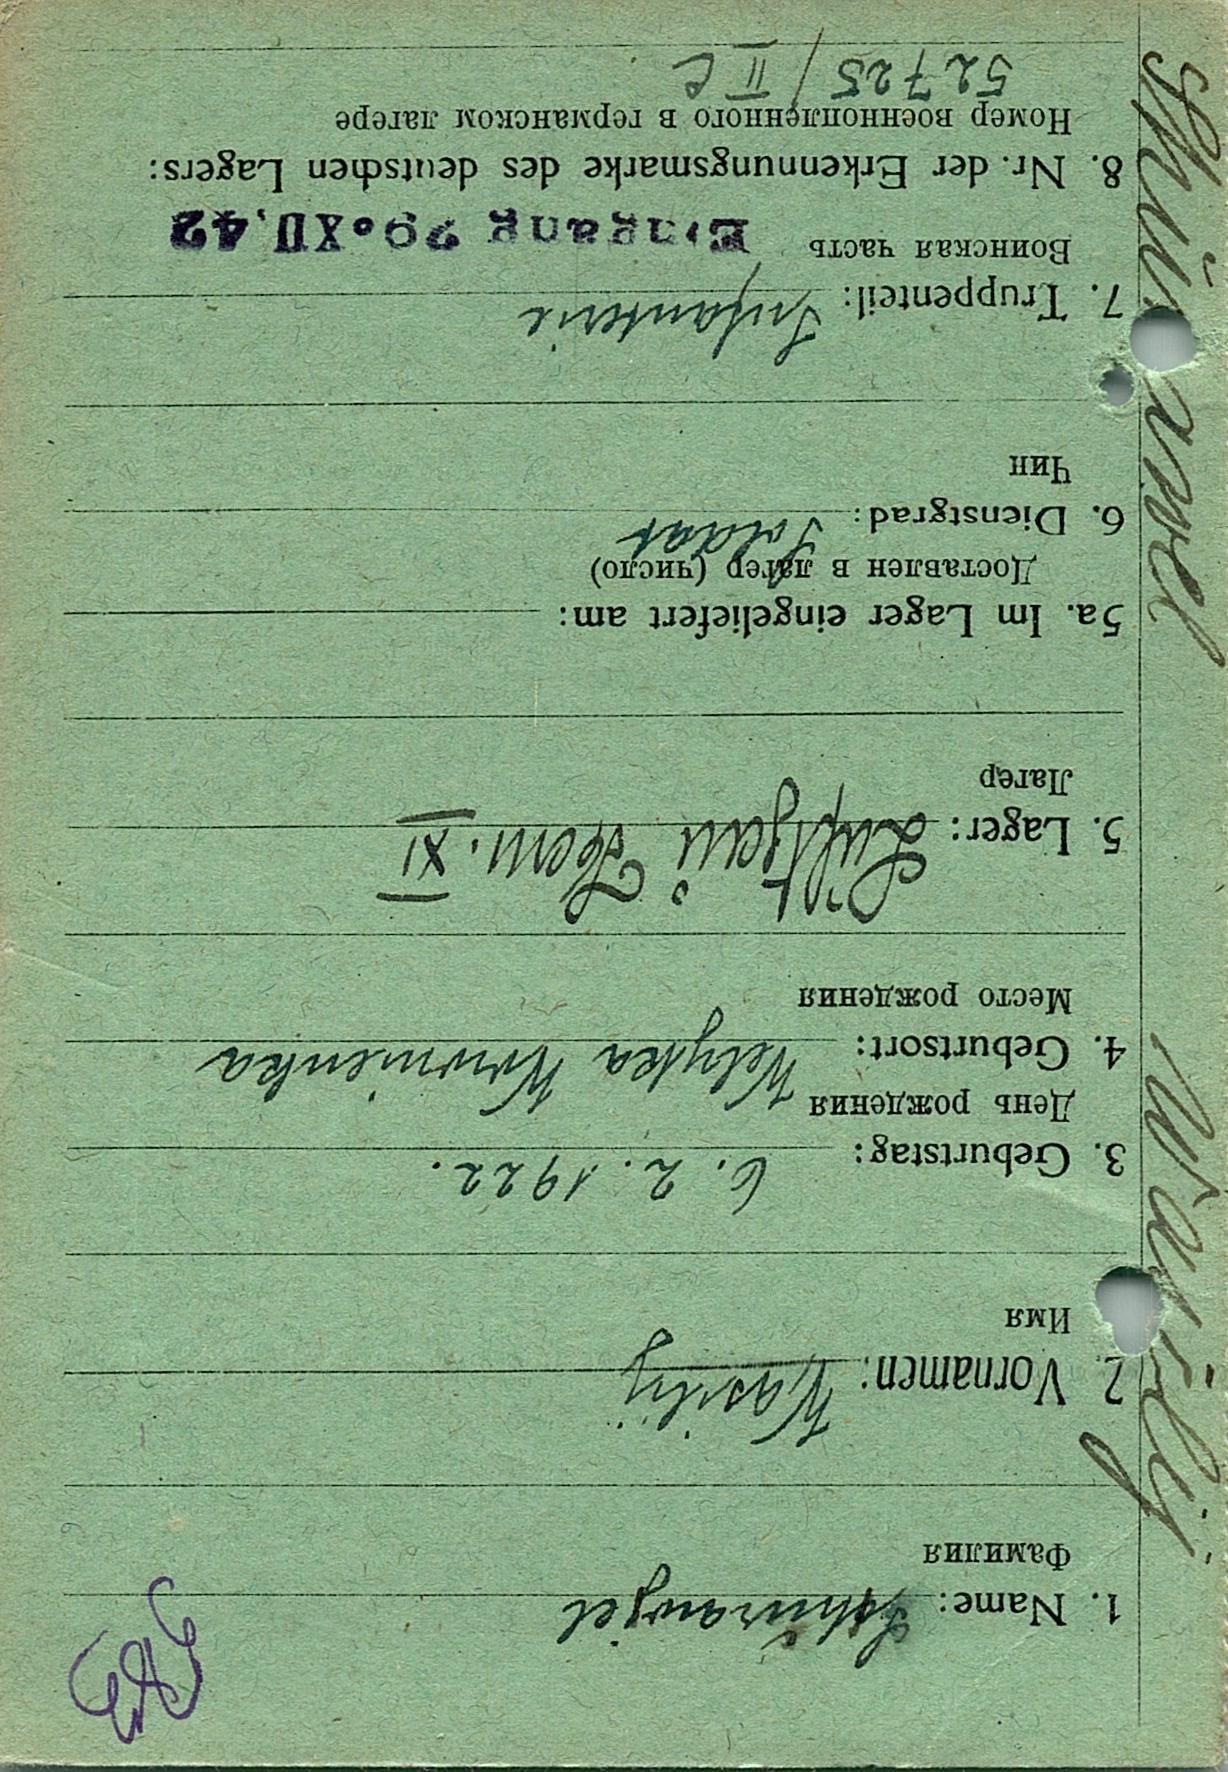 1. Name: Schurawjel
Фамилия
2. Vornamen: Wasilij
Имя
3. Geburtstag: 6. 2. 1922.
День рождения
4. Geburtsort: Welyka
Место рождения
5. Lager: Luftgau Kom. XI
Лагер
5a. Im Lager eingeliefert am:
Доставлен в лагер (число)
6. Dienstgrad: Soldat
Чин
7. Truppenteil: Infanterie
Воинская часть Eingang 29. XII. 42
8. Nr. der Erkennungsmarke des deutschen Lagers:
Номер военнопленного в германском лагере
52725 / II C
Wasilij